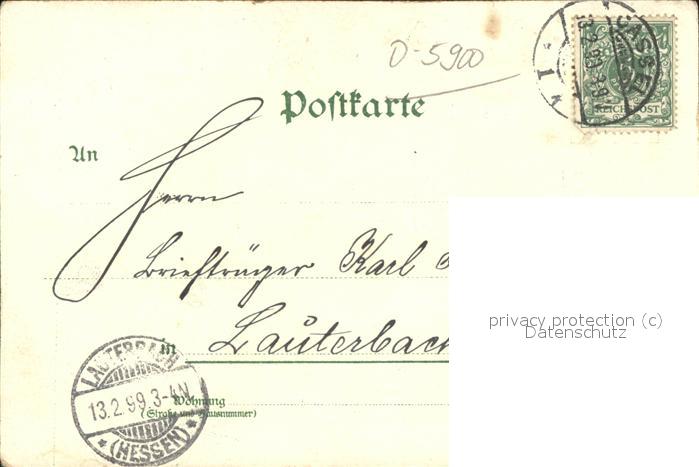 D-5900
CASSEL
1
13.2.99.3-
REICHSPOST
Postkarte
An
Herrn
Briefträger Karl
in Lauterbach
Wohnung
(Straße und Hausnummer)
LAUTERBACH
13.2.99.3-4N
(HESSEN)
privacy protection (c)
Datenschutz